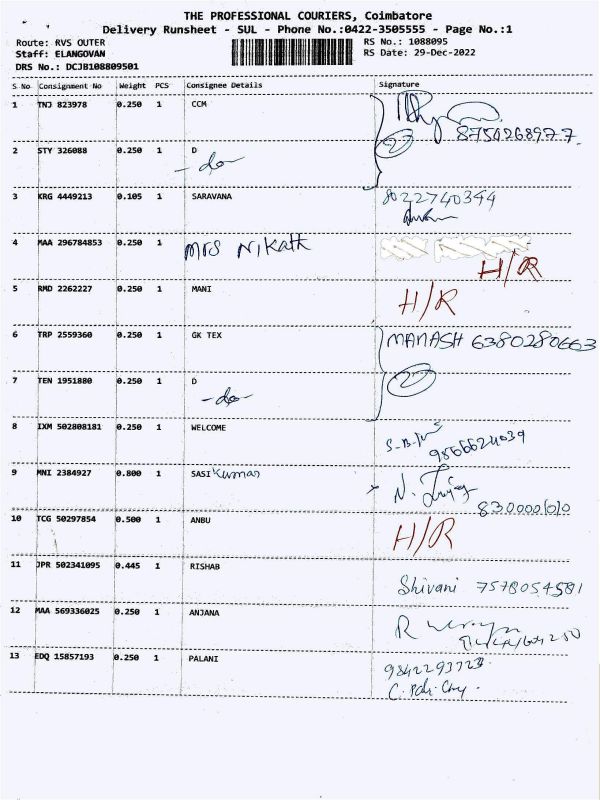 THE PROFESSIONAL COURIERS, Coimbatore
Delivery Runsheet - SUL - Phone No.:0422-3505555 - Page No.:1
Route: RVS OUTER RS No.: 1088095
Staff: ELANGOVAN RS Date: 29-Dec-2022
DRS No.: DCJB108809501
S No Consignment No Weight PCS Consignee Details Signature
1 TNJ 823978 0.250 1 CCM
8754268977
2 STY 326088 0.250 1 D
-do-
3 KRG 4449213 0.105 1 SARAVANA 8022740344
4 MAA 296784853 0.250 1 Mrs Nikath
H/R
5 RMD 2262227 0.250 1 MANI H/R
6 TRP 2559360 0.250 1 GK TEX MANASH 6380280663
7 TEN 1951880 0.250 1 D
-do-
8 IXM 502808181 0.250 1 WELCOME
9866624039
9 MNI 2384927 0.800 1 SASI Kumar
10 TCG 50297854 0.500 1 ANBU H/R
11 JPR 502341095 0.445 1 RISHAB
Shivani 7578054581
12 MAA 569336025 0.250 1 ANJANA
13 EDQ 15857193 0.250 1 PALANI 9842293723